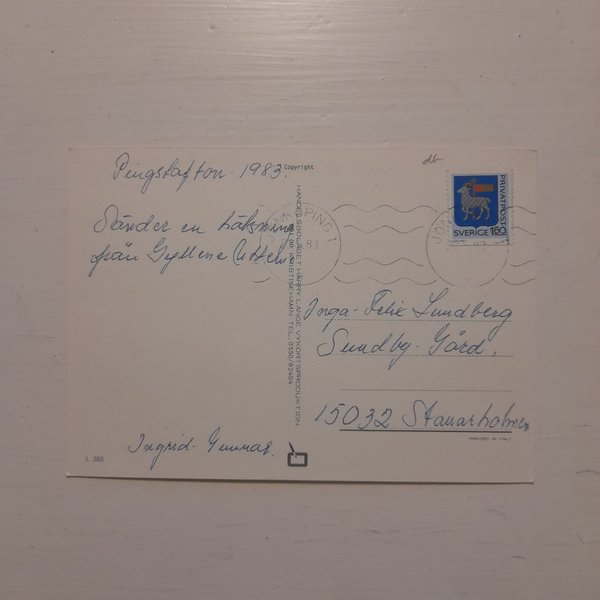 Pingstafton 1983.
Copyright
db
PRIVATPOST
SVERIGE 160
JÖNKÖPING 1
83
Sänder en hälsning
från Gyllene Uttern
HANDELSBOLAGET HARRY LANGE VYKORTSPRODUKTION
KRISTINEHAMN TEL. 0550/82404
Inga-Felix Lundberg
Sundby-Gård,
15032 Stallarholmen
PRINTED IN ITALY
Ingrid-Gunnar.
L 260